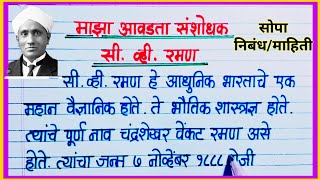 माझा आवडता संशोधक
सी. व्ही. रमण
सोपा
निबंध/माहिती
सी. व्ही. रमण हे आधुनिक भारताचे एक
महान वैज्ञानिक होते. ते भौतिक शास्त्रज्ञ होते.
त्यांचे पूर्ण नाव चंद्रशेखर वेंकट रमण असे
होते. त्यांचा जन्म ७ नोव्हेंबर १८८८ रोजी